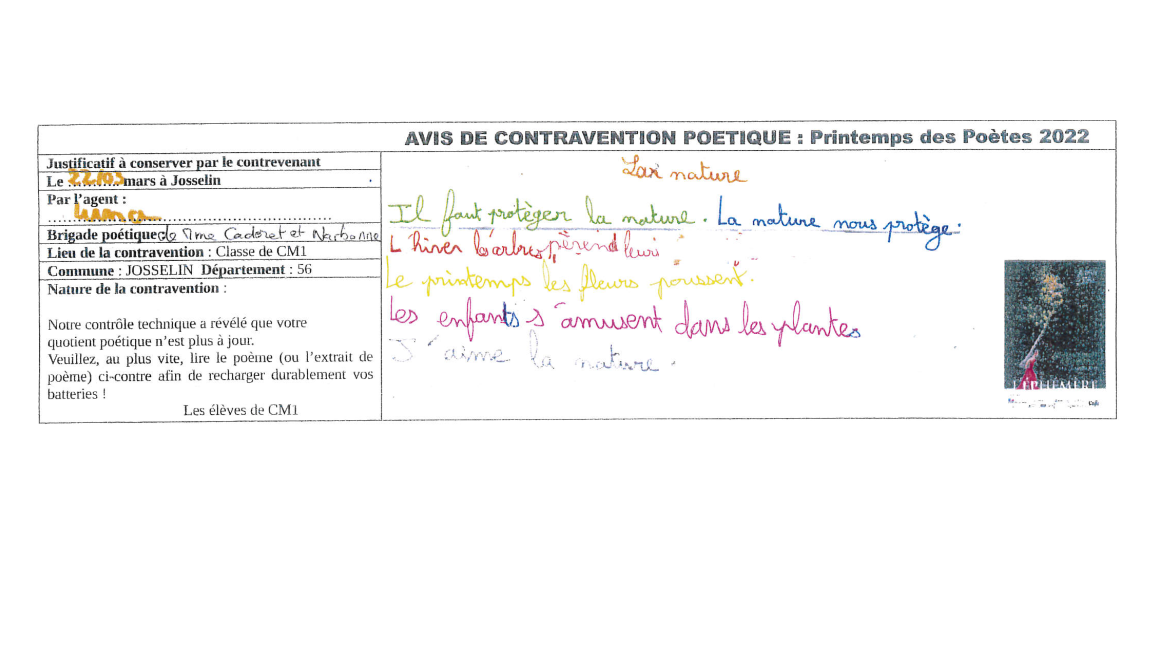 AVIS DE CONTRAVENTION POETIQUE : Printemps des Poètes 2022
Justificatif à conserver par le contrevenant
Le 22/03 mars à Josselin
Par l'agent :
Brigade poétique de Mme Cadoret et Narbonne
Lieu de la contravention : Classe de CM1
Commune : JOSSELIN Département : 56
Nature de la contravention :
Notre contrôle technique a révélé que votre
quotient poétique n'est plus à jour.
Veuillez, au plus vite, lire le poème (ou l'extrait de
poème) ci-contre afin de recharger durablement vos
batteries !
Les élèves de CM1
La nature
Il faut protéger la nature. La nature nous protège.
L'hiver arbres leur
Le printemps les fleurs poussent.
Les enfants s'amusent dans les plantes
J'aime la nature.
L'ÉPHÉMÈRE